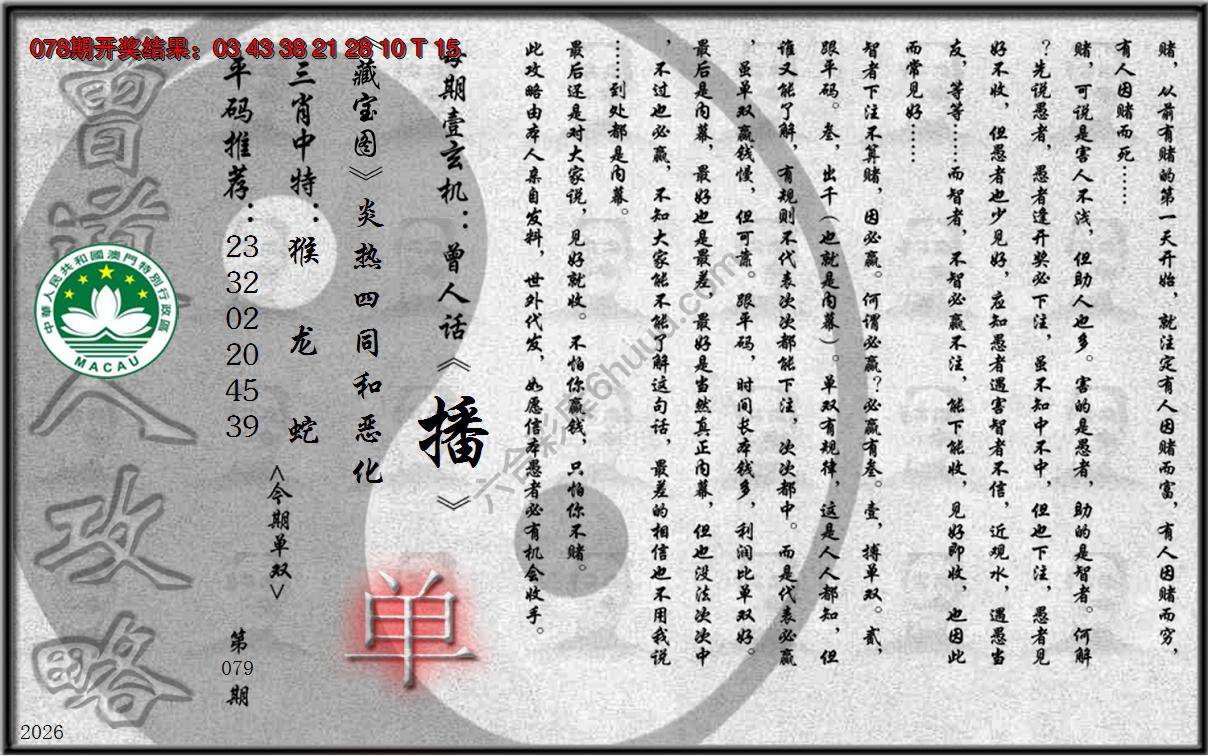 078期开奖结果：03 43 38 21 28 10 T 15
赌，从前有赌的第一天开始，就注定有人因赌而富，有人因赌而穷，
有人因赌而死……
赌，可说是害人不浅，但助人也多。害的是愚者，助的是智者。何解
？先说愚者，愚者逢开奖必下注，虽不知中不中，但也下注，愚者见
好不收，但愚者也少见好，应知愚者遇害智者不信，近观水，遇愚当
友，等等……而智者，不智必赢不注，能下能收，见好即收，也因此
而常见好……
智者下注不算赌，因必赢。何谓必赢？必赢有叁。壹，搏单双。贰，
跟平码。叁，出千（也就是内幕）。单双有规律，这是人人都知，但
谁又能了解，有规则不代表次次都能下注，次次都中。而是代表必赢
，虽单双赢钱慢，但可靠。跟平码，时间长本钱多，利润比单双好。
最后是内幕，最好也是最差，最好是当然真正内幕，但也没法次次中
，不过也必赢，不知大家能不能了解这句话，最差的相信也不用我说
……到处都是内幕。
最后还是对大家说，见好就收。不怕你赢钱，只怕你不赌。
此攻略由本人亲自发料，世外代发，如愿信本愚者必有机会收手。
每期壹玄机：曾人话《播》
《藏宝图》炎热四同和恶化
三肖中特：猴 龙 蛇
平码推荐：23 32 02 20 45 39
<今期单双>
单
第079期
曾道人攻略
中華人民共和國澳門特別行政區
MACAU
六合彩库6huuu.com
2026